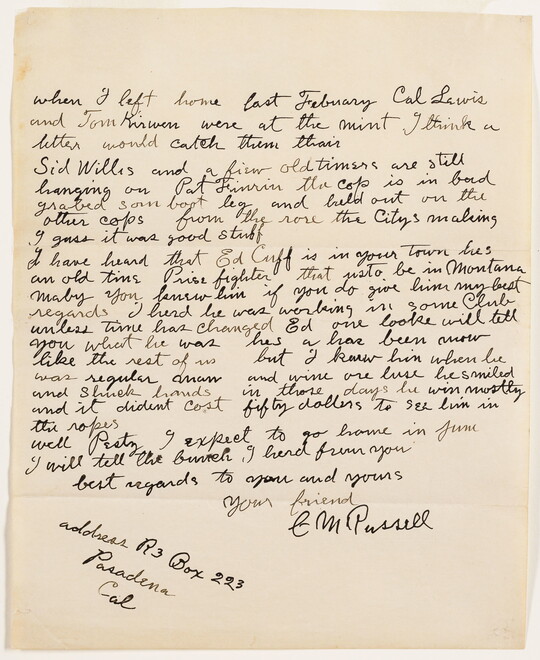 when I left home last February Cal Lewis
and Tom Kirwen were at the mint I think a
letter would catch them thair
Sid Willis and a fiew old timers are still
hanging on Pat Finrin the cop is in bad
grabed som boot leg and held out on the
other cops from the rore the Citys making
I gess it was good stuff
I have heard that Ed Cuff is in your town hes
an old time Prise fighter that usto be in Montana
maby you knew him if you do give him my best
regards I herd he was working in some Club
unless time has changed Ed one looke will tell
you what he was hes a has been now
like the rest of us but I knew him when he
was regular man and wine ore luse he smiled
and shuck hands in those days he win mostly
and it dident cost fifty dollers to see him in
the ropes
well Pesty I expect to go home in June
I will tell the bunch I herd from you
best regards to you and yours
your friend
C M Russell
address R3 Box 223
Pasadena
Cal